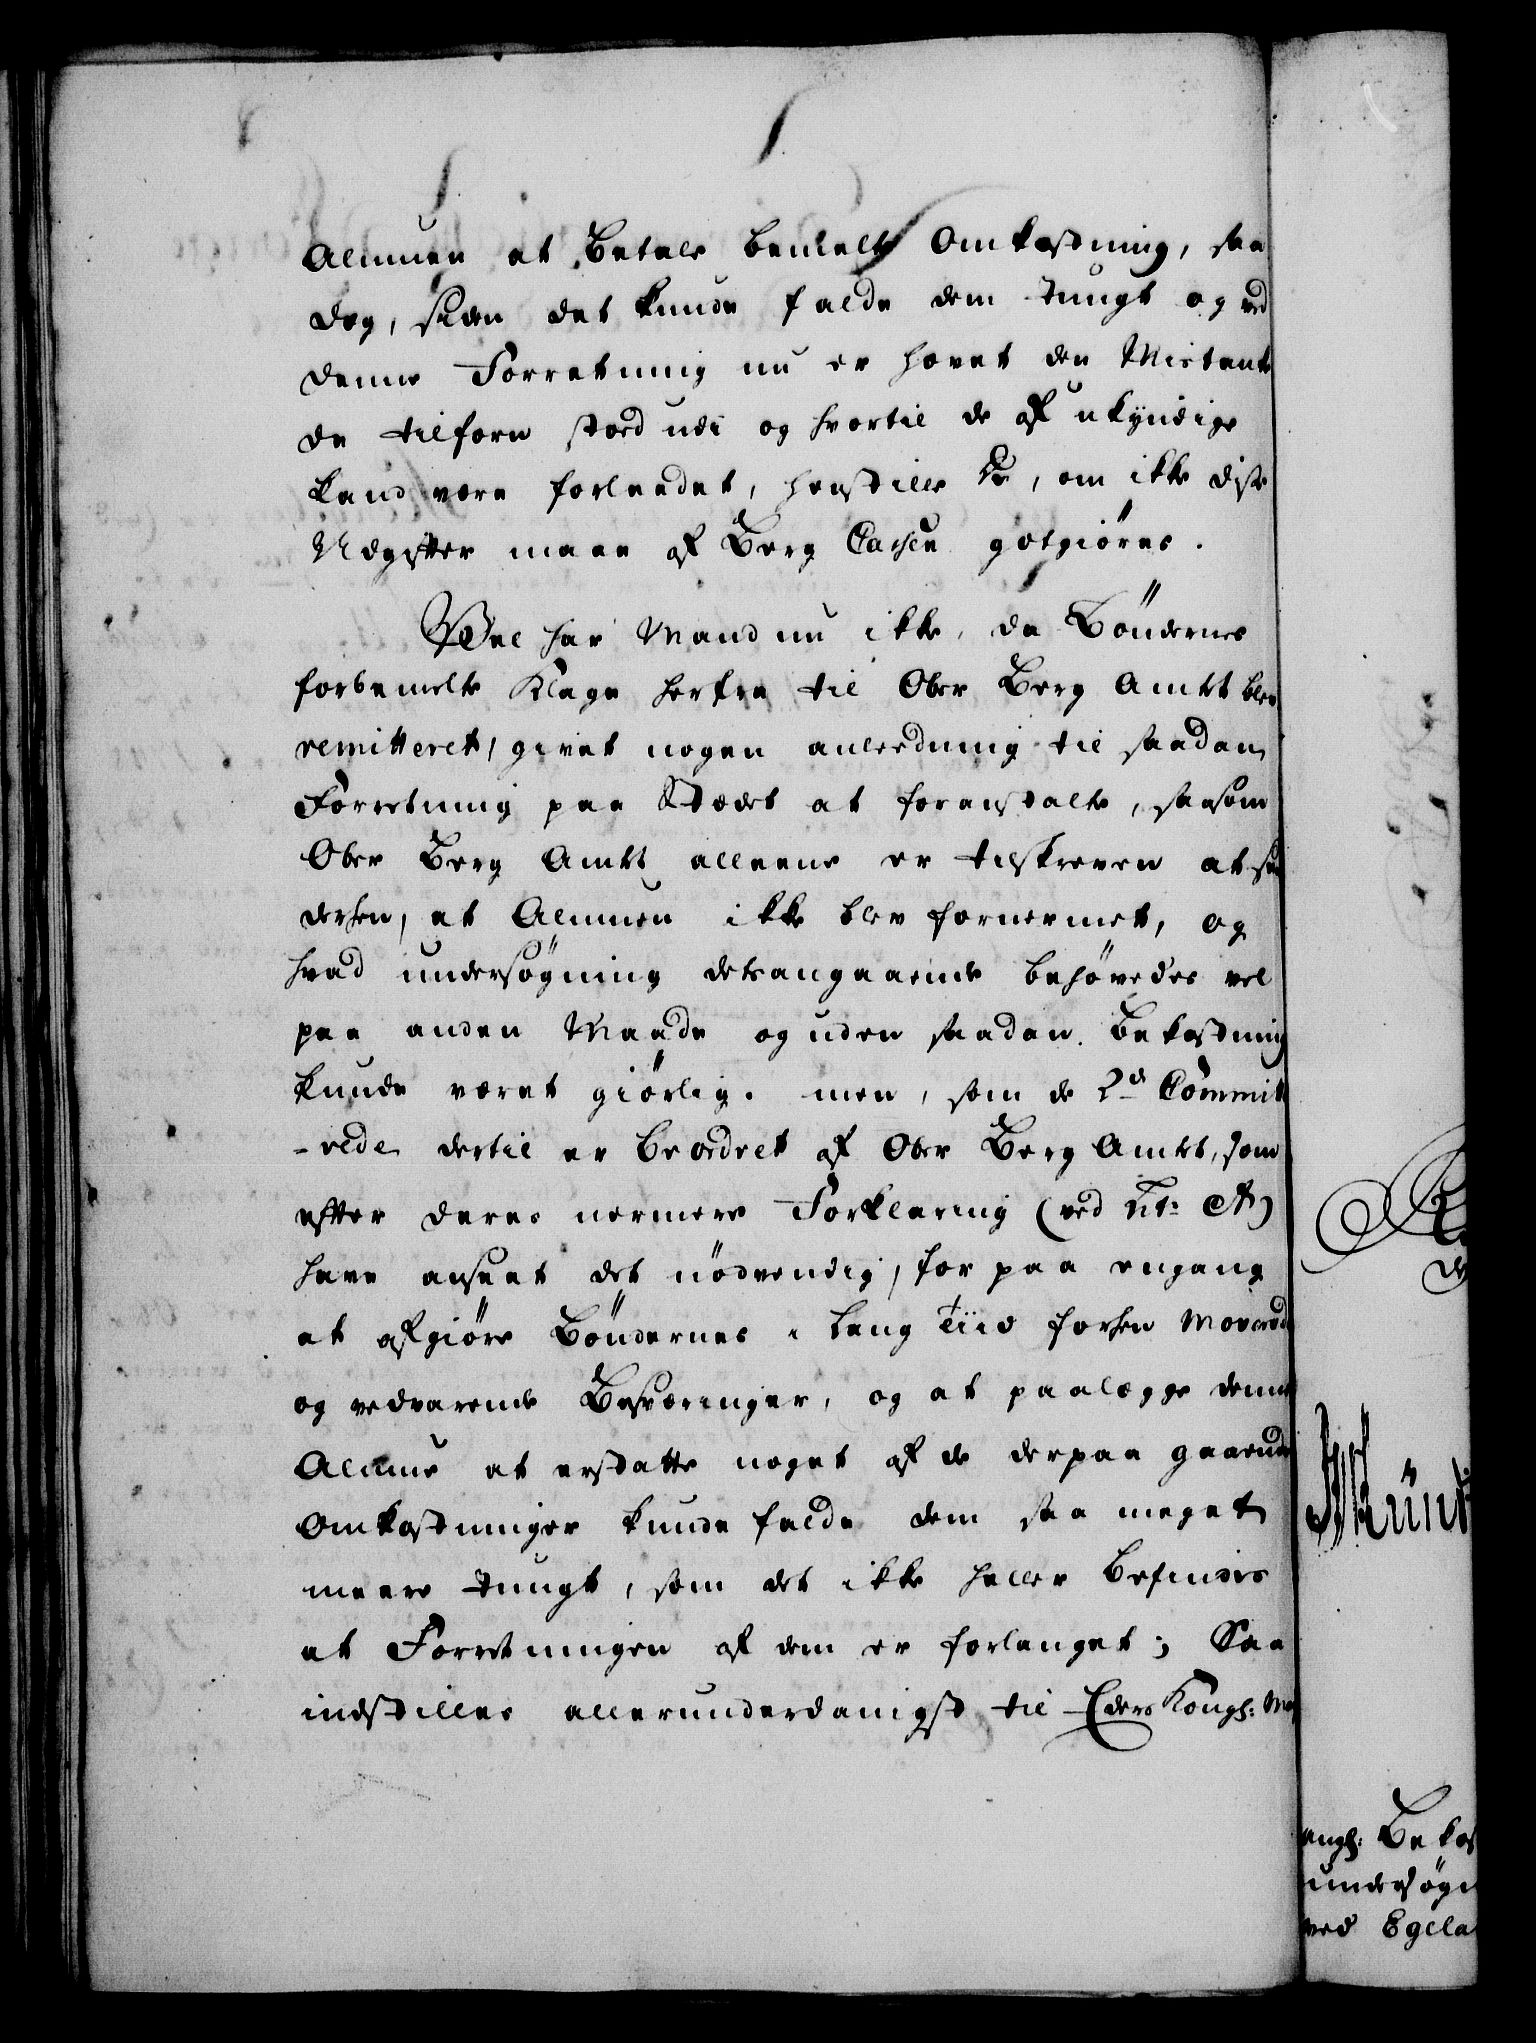 Almuen at Betale bemelte Omkostning, saa
dog, siden det kunde falde dem tungt og ved
denne Forretning nu er hævet den Mistanke
de tilforn stoed udi og hvortil de af ukyndige
kand være forleedet, henstille de, om ikke disse
Udgifter maae af Berg Cassen gotgiøres.
Vel har Mand nu ikke, da Böndernes
forbemelte Klage herfra til Ober Berg Amtet blev
remitteret, givet nogen anleedning til saadan
Forretning paa Stædet at foranstalte, saasom
Ober Berg Amtet alleene er tilskreven at see
derhen, at Almuen ikke blev fornermet, og
hvad undersögning detsangaaende behövedes vel
paa anden Maade og uden saadan Bekostning
kunde været giörlig. men, som de 2de Committ
-erede dertil er beordret af Ober Berg Amtet, som
efter deres nermere Forklaring (ved Lit: A)
have anseet det nödvendig, for paa engang
at afgiöre Böndernes i lang Tiid forhen moverede
og vedvarende Besværinger, og at paalægge denne
Almue at erstatte noget af de derpaa gaaende
Omkostninger kunde falde dem saa meget
meere tungt, som det ikke heller befindes
at Forretningen af dem er forlanget; Saa
indstilles allerunderdanigst til Eders Kongl: May
ang: Bekos
undersögn
ved Egela